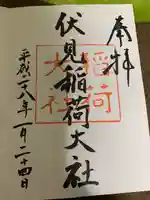 奉拝
伏見稲荷大社
平成二十八年一月二十四日
稲荷
大社